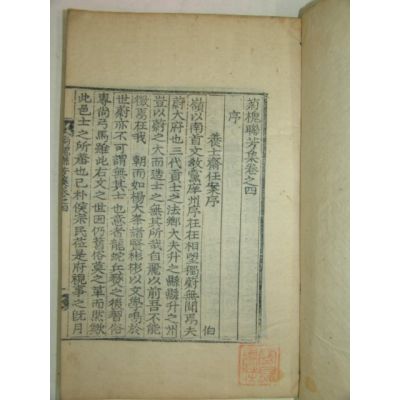 菊槐聯芳集卷之四
序
養士齋任案序 伯
嶺以南首文敎黨庠州序在在相望獨蔚無聞焉夫
蔚大府也三代貢士之法鄕大夫升之縣縣升之州
豈以蔚之大而造士之無其所哉自羅以前吾不能
徵焉在我 朝而如楊大峯諸賢彬彬以文學鳴於
世蔚亦不可謂無其士也意者龍蛇兵燹之後習俗
專尙弓馬雖此右文之世因仍舊俗莫之革而然歟
此邑士之所齎也己卯侯 民莅是府視事之旣月